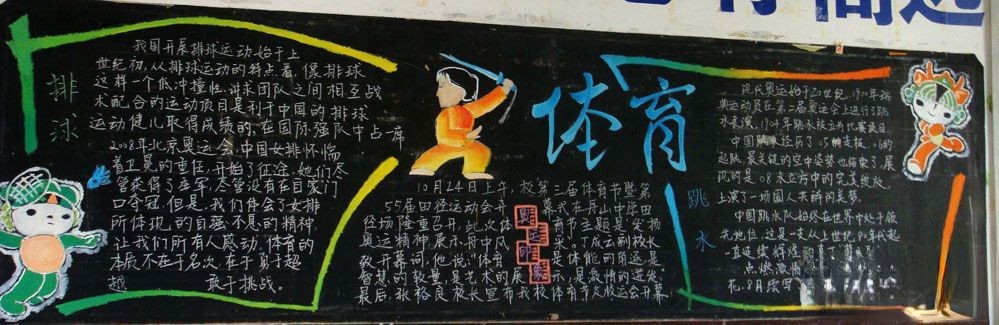 排球
我国开展排球运动始于上
世纪初,从排球运动的特点看,像排球
这样一个低冲撞性,讲求团队之间相互战
术配合的运动项目是利于中国的排球
运动健儿取得成绩的,在国际强队中占一席
2008年北京奥运会,中国女排怀惴
着卫冕的重任,开始了征途,她们尽
管获得了季军,尽管没有在自家门
口夺冠,但是,我们体会了女排
所体现的自强不息的精神,
让我们所有人感动,体育的
本质不在于名次,在于勇于超
越 敢于挑战。
体育
10月24日上午,校第三届体育节暨第
55届田径运动会开幕式在舟山中学田
径场隆重召开,此次体育节主题是发扬
奥运精神,展示舟中风采,丁成云副校长
致开幕词,他说:"体育是体能的角逐是
智慧的较量,是艺术的展示,是激情的迸发。"
最后,张裕良校长宣布我校体育节及校运会开幕!
奥运印象
跳水
现代奥运始于20世纪,1900年瑞
奥运动员在第二届奥运会上进行了跳
水表演,1904年跳水被立为比赛项目,
起跳,最关键的空中姿势也结束了,展
现的是08水立方中的完美绽放,
上演了一场国人夫群的美梦。
中国跳水队始终在世界中处于领
先地位,这是一支从上世纪80年代起
一直延续辉煌
点燃激情
花,8月续写